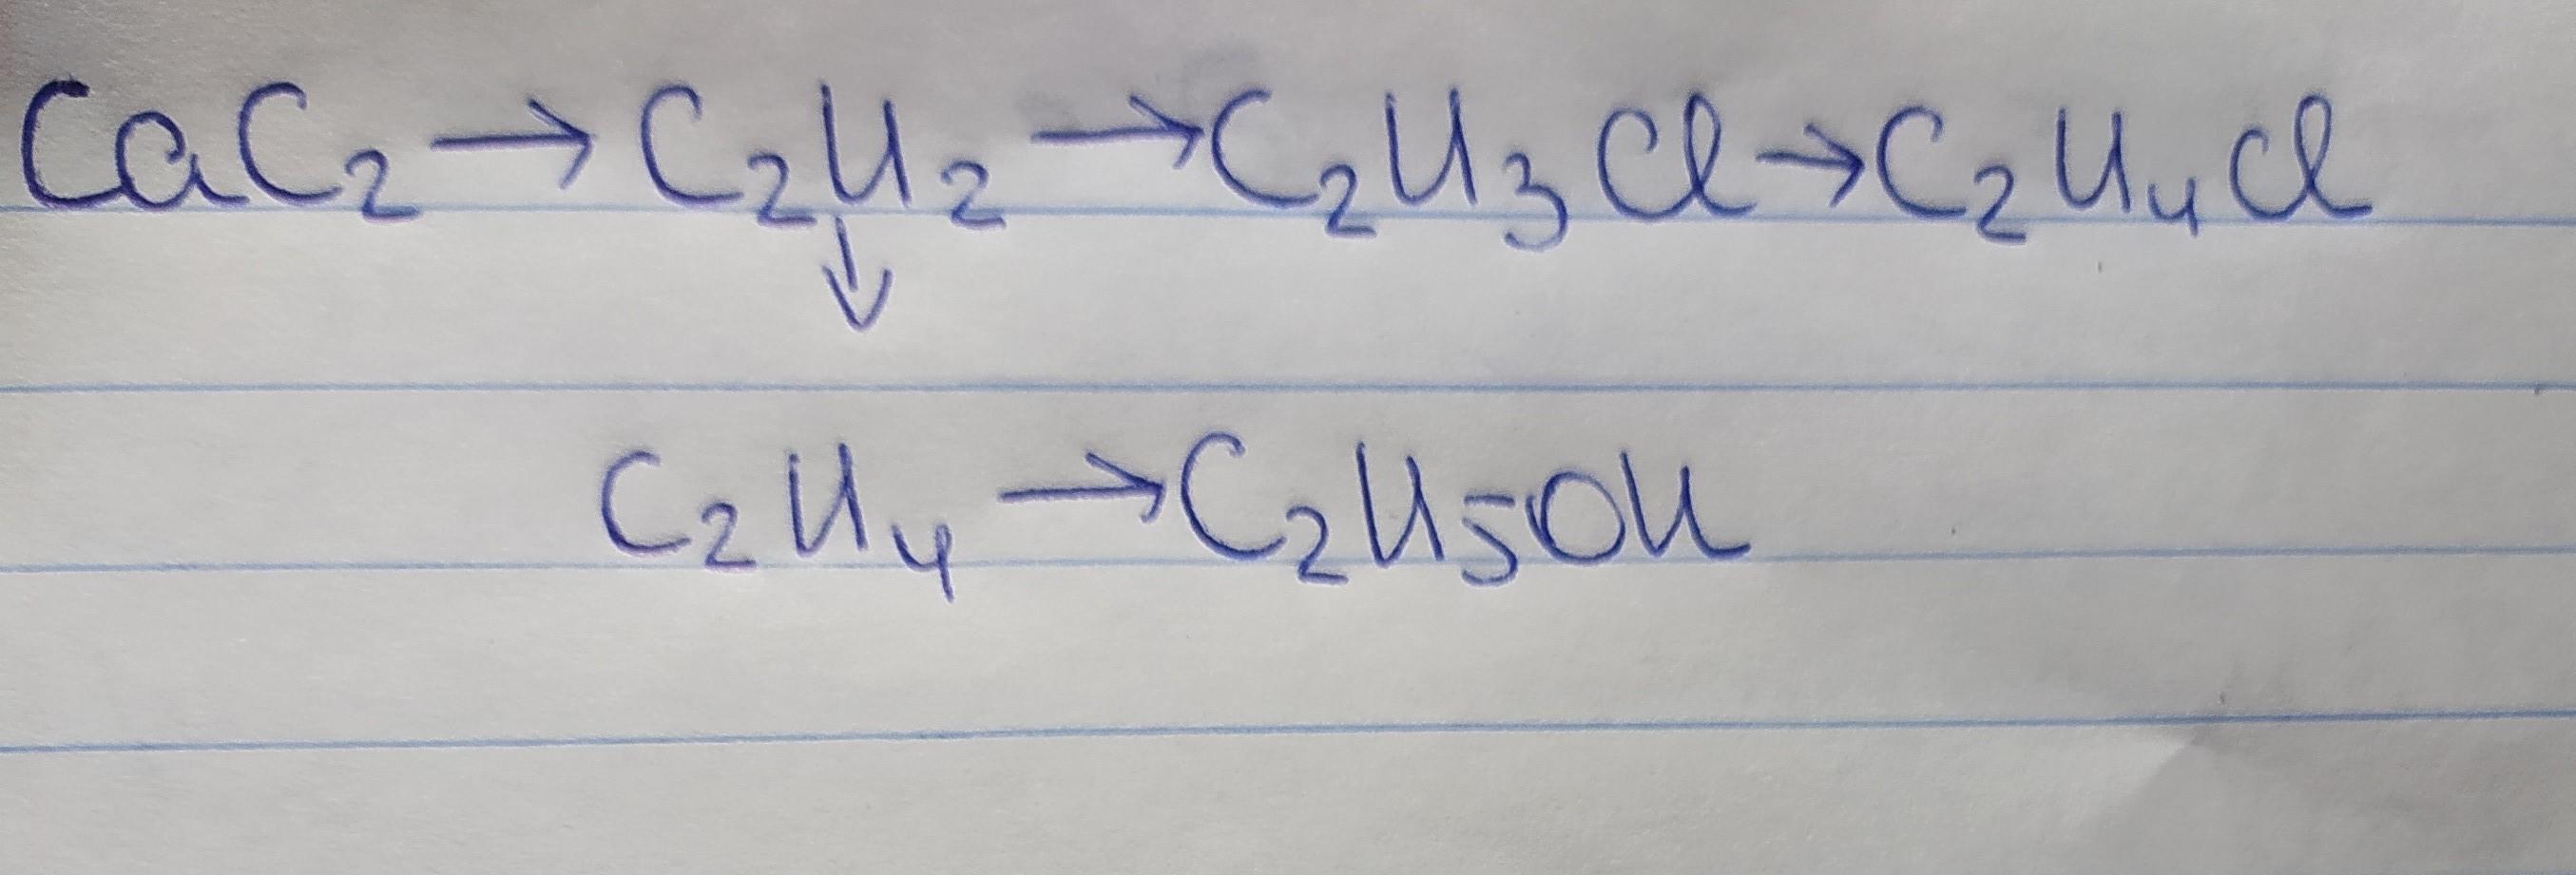 CaC₂ → C₂H₂ → C₂H₃Cl → C₂H₄Cl
↓
C₂H₄ → C₂H₅OH